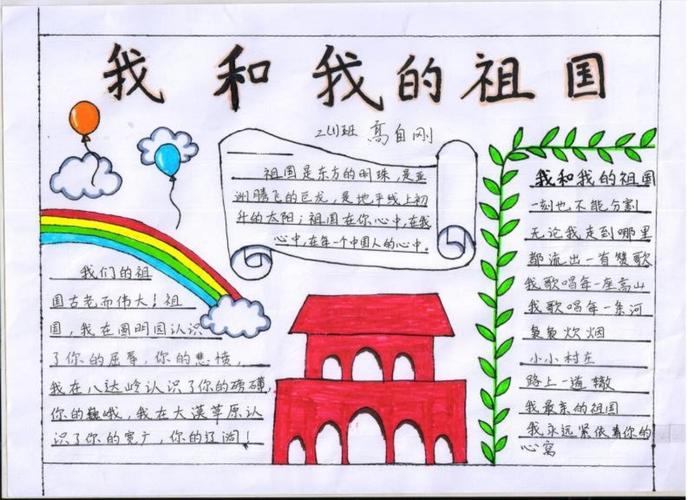 我和我的祖国
二(1)班 高自刚
祖国是东方的明珠,是亚
洲腾飞的巨龙,是地平线上初
升的太阳;祖国在你心中,在我
心中,在每一个中国人的心中。
我们的祖
国古老而伟大!祖
国,我在圆明园认识
了你的屈辱,你的悲愤,
我在八达岭认识了你的雄雄,
你的巍峨,我在大漠草原认
识了你的宽广,你的辽阔!
我和我的祖国
一刻也不能分割
无论我走到哪里
都流出一首赞歌
我歌唱每一座高山
我歌唱每一条河
袅袅炊烟
小小村庄
路上一道辙
我最亲的祖国
我永远紧依着你的
心窝